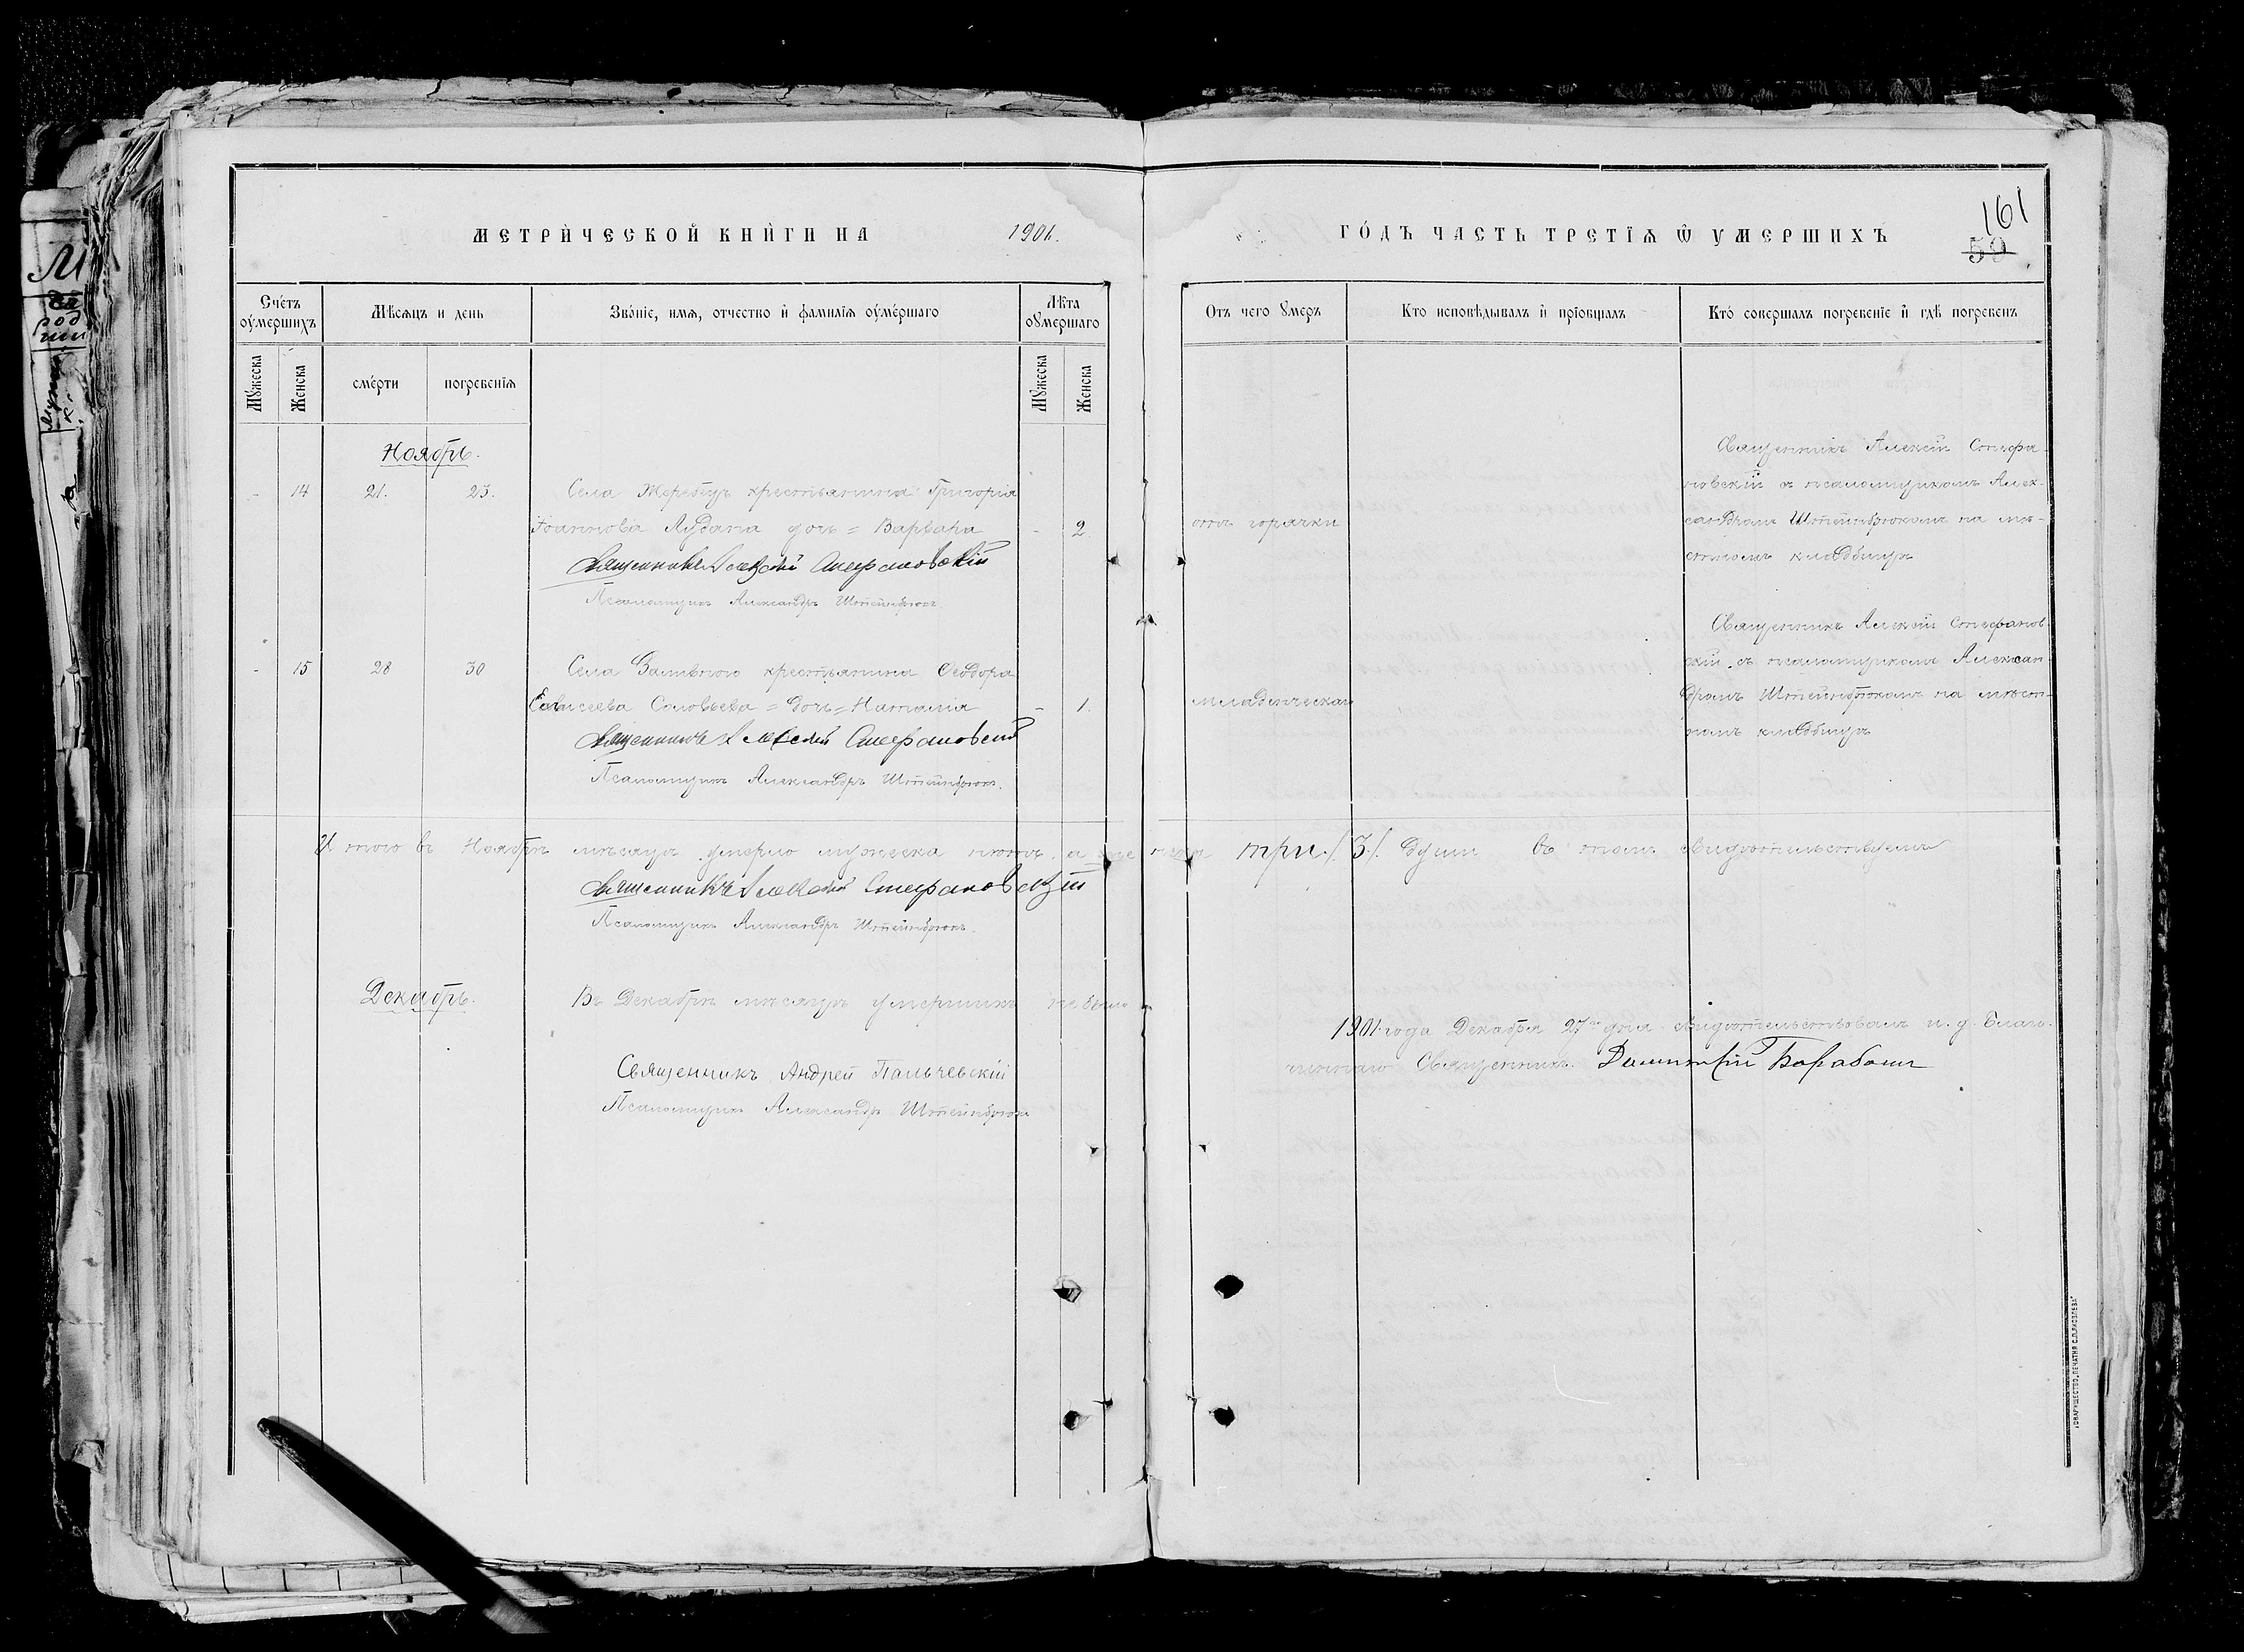 МЕТРИЧЕСКОЙ КНИГИ НА 1901.
ГОДЪ ЧАСТЬ ТРЕТІЯ Ѿ УМЕРШИХЪ
161
59
Счетъ оумершихъ
Мѣсяцъ и день
Званіе, имя, отчество и фамилія оумершаго
Лѣта оумершаго
Мужеска
Женска
смерти
погребенія
Мужеска
Женска
Отъ чего умеръ
Кто исповѣдывалъ и пріобщалъ
Кто совершалъ погребеніе и гдѣ погребенъ
Ноябрь.
- 14 21. 23. Села Жеребецъ крестьянина Григорія
Іоаннова Лудана дочь = Варвара - 2
Священникъ Алексій Стефановскій
Псаломщикъ Александръ Штейнбрюкъ.
отъ горячки
Священникъ Алексій Стефа-
новскій съ псаломщикомъ Алек-
сандромъ Штейнбрюкомъ на мѣ-
стномъ кладбищѣ
- 15 28 30 Села крестьянина Ѳеодора
Евсеева Соловьева = дочь = Наталія - 1.
Священникъ Алексій Стефановскій
Псаломщикъ Александръ Штейнбрюкъ.
младенческая
Священникъ Алексій Стефанов-
скій съ псаломщикомъ Алексан-
дромъ Штейнбрюкомъ на мѣст-
номъ кладбищѣ
Итого въ Ноябрѣ мѣсяцѣ умерло мужеска пола три /3/. души въ томъ свидѣтельствуемъ
Священникъ Алексій Стефановскій
Псаломщикъ Александръ Штейнбрюкъ.
Декабрь.
Въ Декабрѣ мѣсяцѣ умершихъ не было
Священникъ Андрей Пальчевскій
Псаломщикъ Александръ Штейнбрюкъ
1901 года Декабря 27 дня свидѣтельствовалъ и. д. Благо-
чиннаго Священникъ Димитрій Барабашъ
ТОВАРИЩЕСТВО „ПЕЧАТНЯ С.П.ЯКОВЛЕВА“